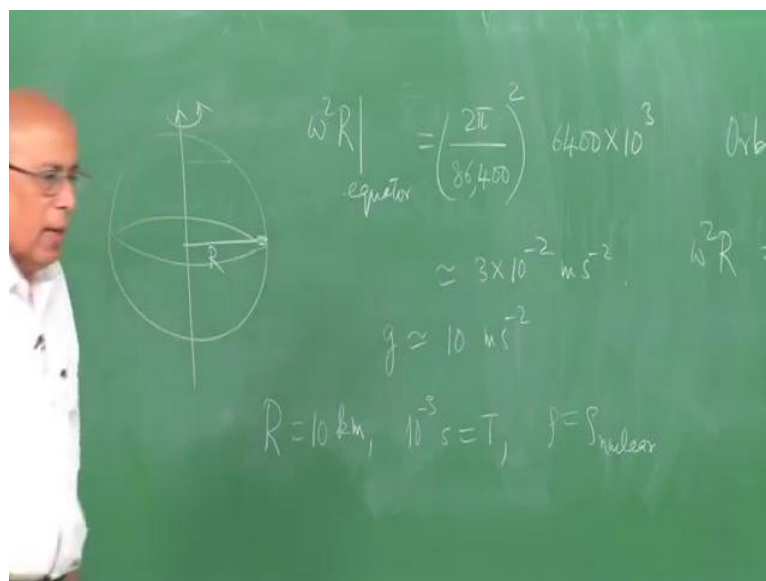 ω²R|equator = (2π/86,400)² 6400×10³
Orb
R
≃ 3×10⁻² ms⁻².
ω²R =
g ≃ 10 ms⁻²
R = 10 km, 10⁻³ s = T, ρ = ρnuclear